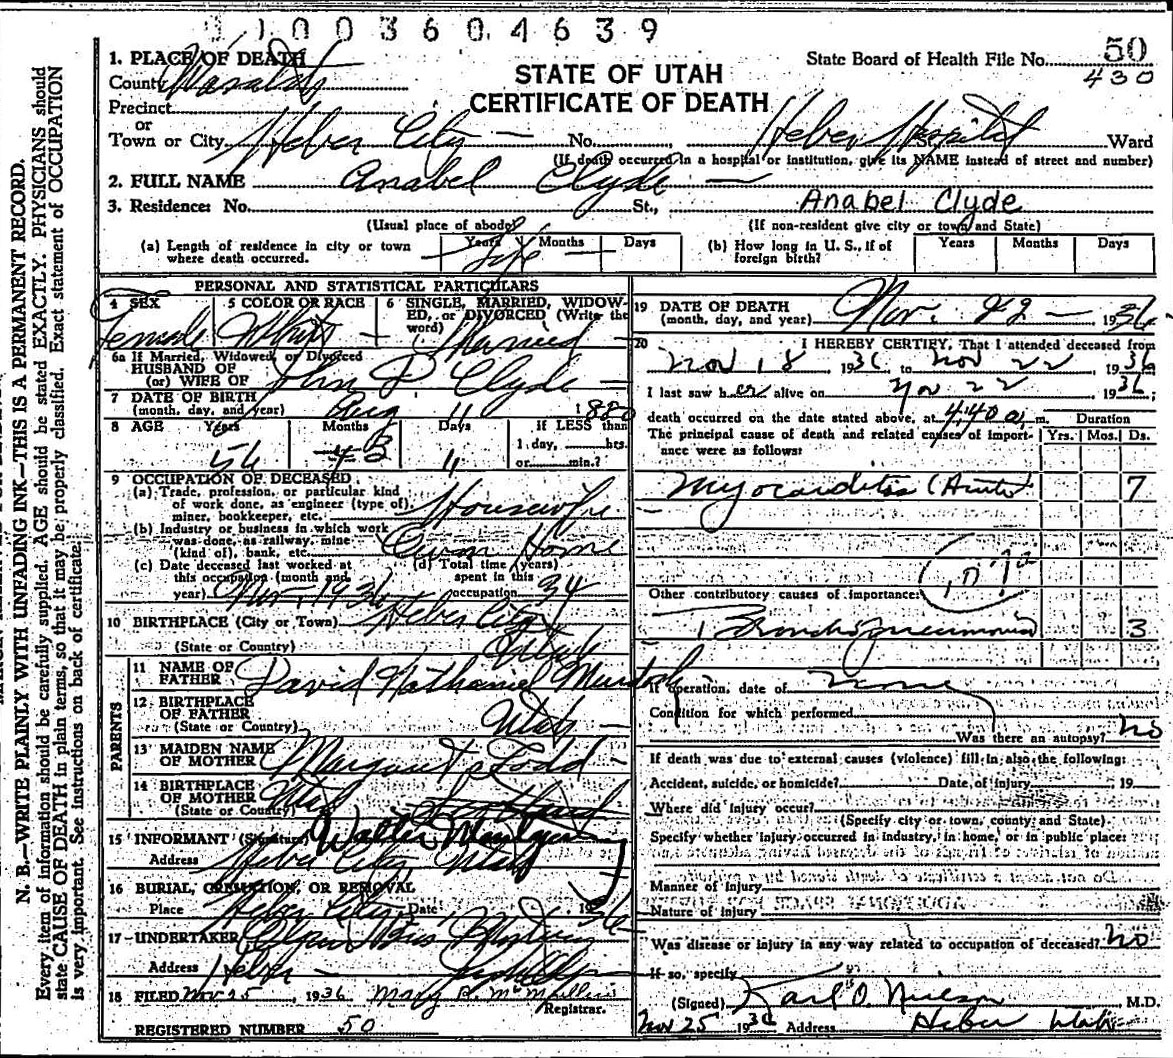 01003604639
1. PLACE OF DEATH
County Wasatch
State Board of Health File No. 50
430
STATE OF UTAH
CERTIFICATE OF DEATH
Precinct
or
Town or City Heber City No. Heber Hospital St. Ward
(If death occurred in a hospital or institution, give its NAME instead of street and number)
2. FULL NAME Anabel Clyde
3. Residence: No. St., Anabel Clyde
(Usual place of abode) (If non-resident give city or town and State)
(a) Length of residence in city or town where death occurred. Years Months Days Life
(b) How long in U. S., if of foreign birth? Years Months Days
PERSONAL AND STATISTICAL PARTICULARS
4 SEX Female
5 COLOR OR RACE White
6 SINGLE, MARRIED, WIDOWED, or DIVORCED (Write the word) Married
6a If Married, Widowed, or Divorced
HUSBAND OF
(or) WIFE OF John P Clyde
7 DATE OF BIRTH
(month, day, and year) Aug 11 1880
8 AGE Years 56 Months 3 Days 11 If LESS than
1 day, hrs.
or min.?
9 OCCUPATION OF DECEASED
(a) Trade, profession, or particular kind of work done, as engineer (type of), miner, bookkeeper, etc. Housewife
(b) Industry or business in which work was done, as railway, mine (kind of), bank, etc. Own Home
(c) Date deceased last worked at this occupation (month and year) Nov. 1936
(d) Total time (years) spent in this occupation 34
10 BIRTHPLACE (City or Town) Heber City
(State or Country) Utah
PARENTS
11 NAME OF FATHER David Nathaniel Murdock
12 BIRTHPLACE OF FATHER
(State or Country) Utah
13 MAIDEN NAME OF MOTHER Margaret Todd
14 BIRTHPLACE OF MOTHER
(State or Country) Utah
15 INFORMANT (Signature) Walter
Address Heber City Utah
16 BURIAL, CREMATION, OR REMOVAL
Place Heber City Date 1936
17 UNDERTAKER
Address Heber
18 FILED Nov 25, 1936 Mary McMullin
Registrar.
REGISTERED NUMBER 50
19 DATE OF DEATH
(month, day, and year) Nov. 22 1936
20 I HEREBY CERTIFY, That I attended deceased from
Nov 18 1936, to Nov 22, 1936
I last saw her alive on Nov 22 1936;
death occurred on the date stated above, at 4:40 a. m.
The principal cause of death and related causes of importance were as follows: Duration Yrs. Mos. Ds.
Myocarditis (Acute) 7
Other contributory causes of importance:
Broncho pneumonia 3
If operation, date of none
Condition for which performed
Was there an autopsy? no
If death was due to external causes (violence) fill in also the following:
Accident, suicide, or homicide? Date of injury , 19
Where did injury occur?
(Specify city or town, county and State)
Specify whether injury occurred in industry, in home, or in public place:
Manner of injury
Nature of injury
Was disease or injury in any way related to occupation of deceased? no
If so, specify
(Signed) Karl O. Nielson M.D.
Nov 25 1936 Address Heber Utah
N. B.—WRITE PLAINLY WITH UNFADING INK—THIS IS A PERMANENT RECORD.
Every item of information should be carefully supplied. AGE should be stated EXACTLY. PHYSICIANS should
state CAUSE OF DEATH in plain terms, so that it may be properly classified. Exact statement of OCCUPATION
is very important. See instructions on back of certificate.